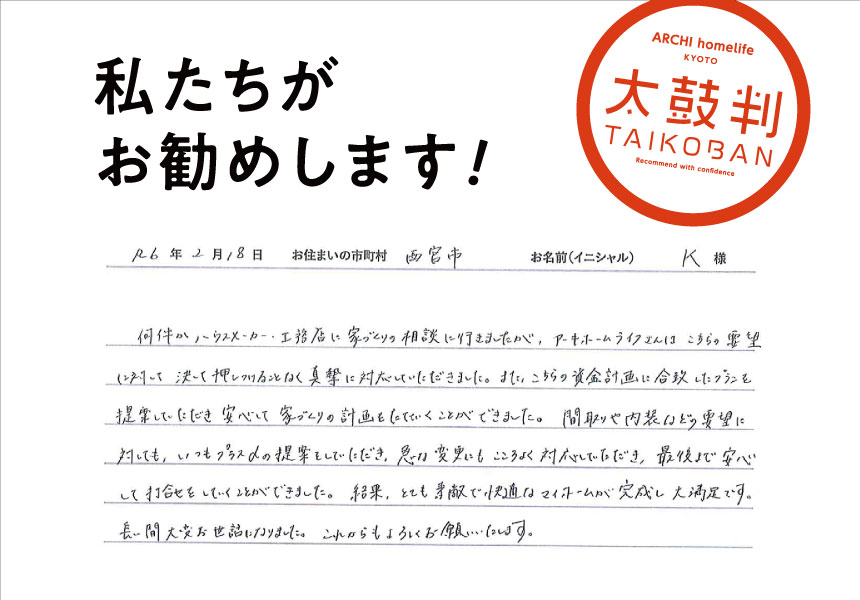 私たちが
お勧めします!
ARCHI homelife
KYOTO
太鼓判
TAIKOBAN
Recommend with confidence
R6 年 2 月 18 日 お住まいの市町村 西宮市 お名前(イニシャル) K 様
何件かハウスメーカー・工務店に家づくりの相談に行きましたが、アーキホームライフさんはこちらの要望
に対して決して押しつけることなく真摯に対応していただきました。また、こちらの資金計画に合致したプランを
提案していただき安心して家づくりの計画をたてていくことができました。間取りや内装などの要望に
対しても、いつもプラスαの提案をしていただき、急な変更にもこころよく対応していただき、最後まで安心
して打合せをしていくことができました。結果、とても素敵で快適なマイホームが完成し大満足です。
長い間大変お世話になりました。これからもよろしくお願いいたします。